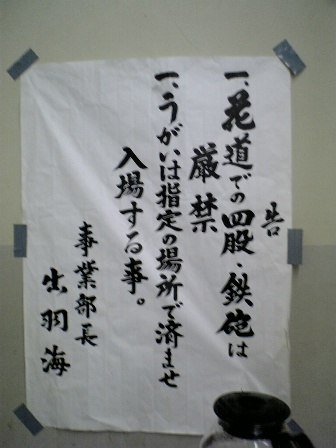 告
一、花道での四股・鉄砲は
厳禁
一、うがいは指定の場所で済ませ
入場する事。
事業部長
出羽海